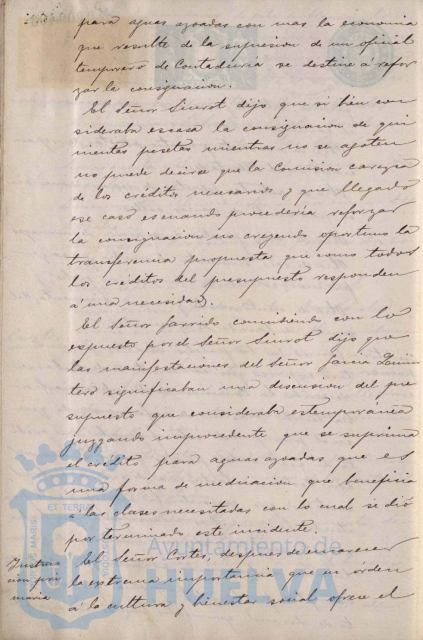 para aguas azoadas con mas la economia
que resulte de la supresion de un oficial
temporero de Contaduría se destine á refor
zar la consignacion.
El Señor Siurot dijo que si bien con
sideraba escasa la consignacion de qui
nientas pesetas mientras no se agoten
no puede decirse que la Comision carezca
de los créditos necesarios y que llegado
ese caso es cuando procedería reforzar
la consignacion no creyendo oportuna la
transferencia propuesta que como todos
los créditos del presupuesto responden
á una necesidad.
El Señor Garrido coincidiendo con lo
expuesto por el Señor Siurot dijo que
las manifestaciones del Señor Garcia
significaban una discusion del pre
supuesto que consideraba estemporanea
juzgando improcedente que se suprima
el crédito para aguas azoadas que es
una forma de medicacion que beneficia
á las clases necesitadas con lo cual se dió
por terminado este incidente.
Instruc
cion pri
maria
El Señor Cortes, despues de encarecer
la estrema importancia que en orden
á la cultura y bienestar social ofrece el
Ayuntamiento de
HUELVA